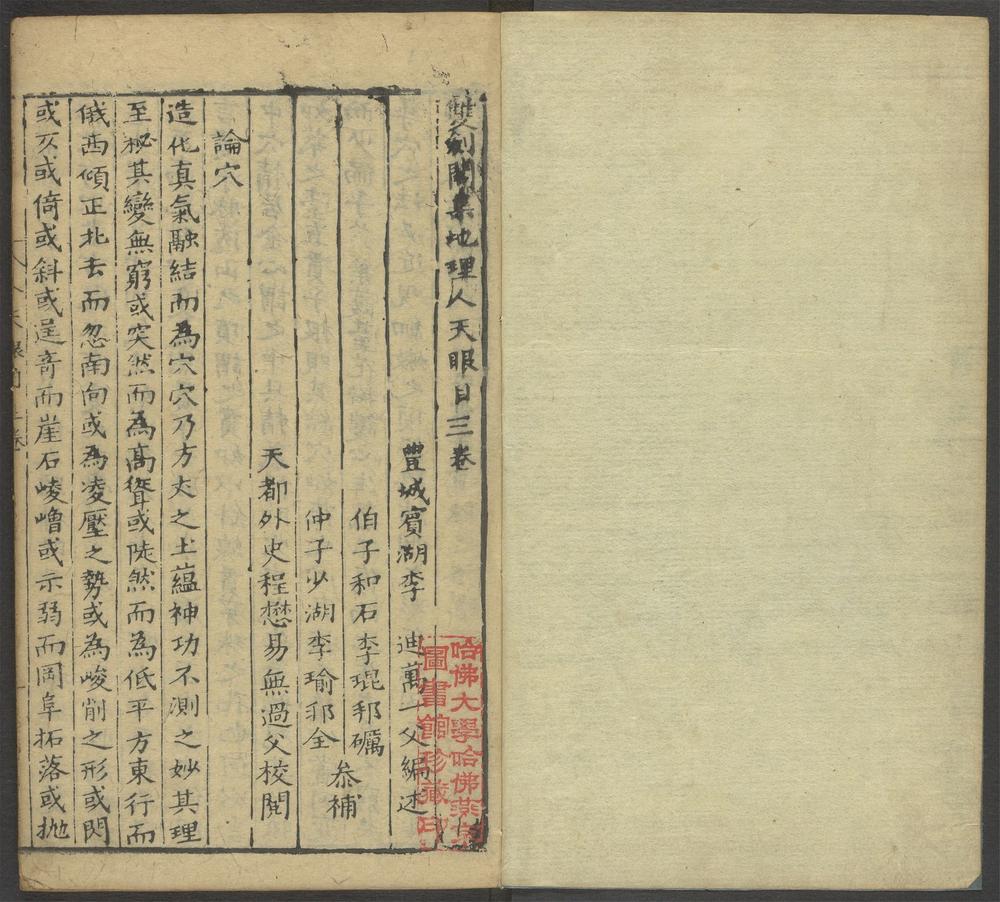 雙劍閣集地理人天眼目三卷
豐城賓湖李 迪萬一父編述
伯子和石李琨邦礪
仲子少湖李瑜邦全
叅補
天都外史程懋易無過父校閱
論穴
造化真氣融結而為穴穴乃方丈之土蘊神功不測之妙其理
至秘其變無窮或突然而為高聳或陡然而為低平方東行而
俄西傾正北去而忽南向或為凌壓之勢或為峻削之形或閃
或仄或倚或斜或逞竒而崖石崚嶒或示弱而岡阜拓落或抛
哈佛大學哈佛燕京
圖書館珍藏印